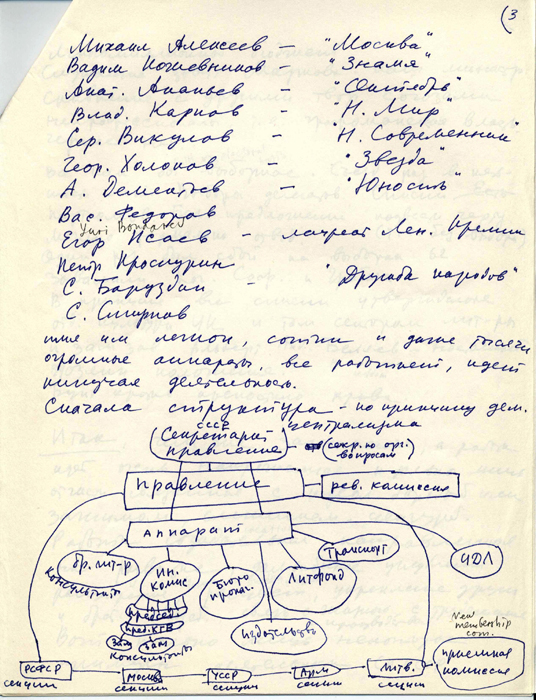 (3
Михаил Алексеев — "Москва"
Вадим Кожевников — "Знамя"
Анат. Ананьев — "Октябрь"
Влад. Карпов — "Н. Мир"
Сер. Викулов — "Н. Современник"
Геор. Холопов — "Звезда"
А. Дементьев — "Юность"
Вас. Федоров
Yuri Bondarev
Егор Исаев — лауреат Лен. премии
Петр Проскурин
С. Баруздин — "Дружба народов"
С. Смирнов
имя им легион, сотни и даже тысячи
огромные аппараты, все работает, идет
кипучая деятельность.
Сначала структура — по принципу дем.
централизма
СССР
Секретариат
правление
(секр. по орг.
вопросам)
Правление
рев. комиссия
Аппарат
бр. лит-р
консультант
Ин.
комис
председ.
пред. КГБ
зам
зам
консультанты
Бюро
пропаг.
Литфонд
Транспорт
ЦДЛ
издательство
New
membership
com.
приемная
комиссия
РСФСР
секции
Москва
секции
УССР
секции
Арм
секции
Литв.
секции